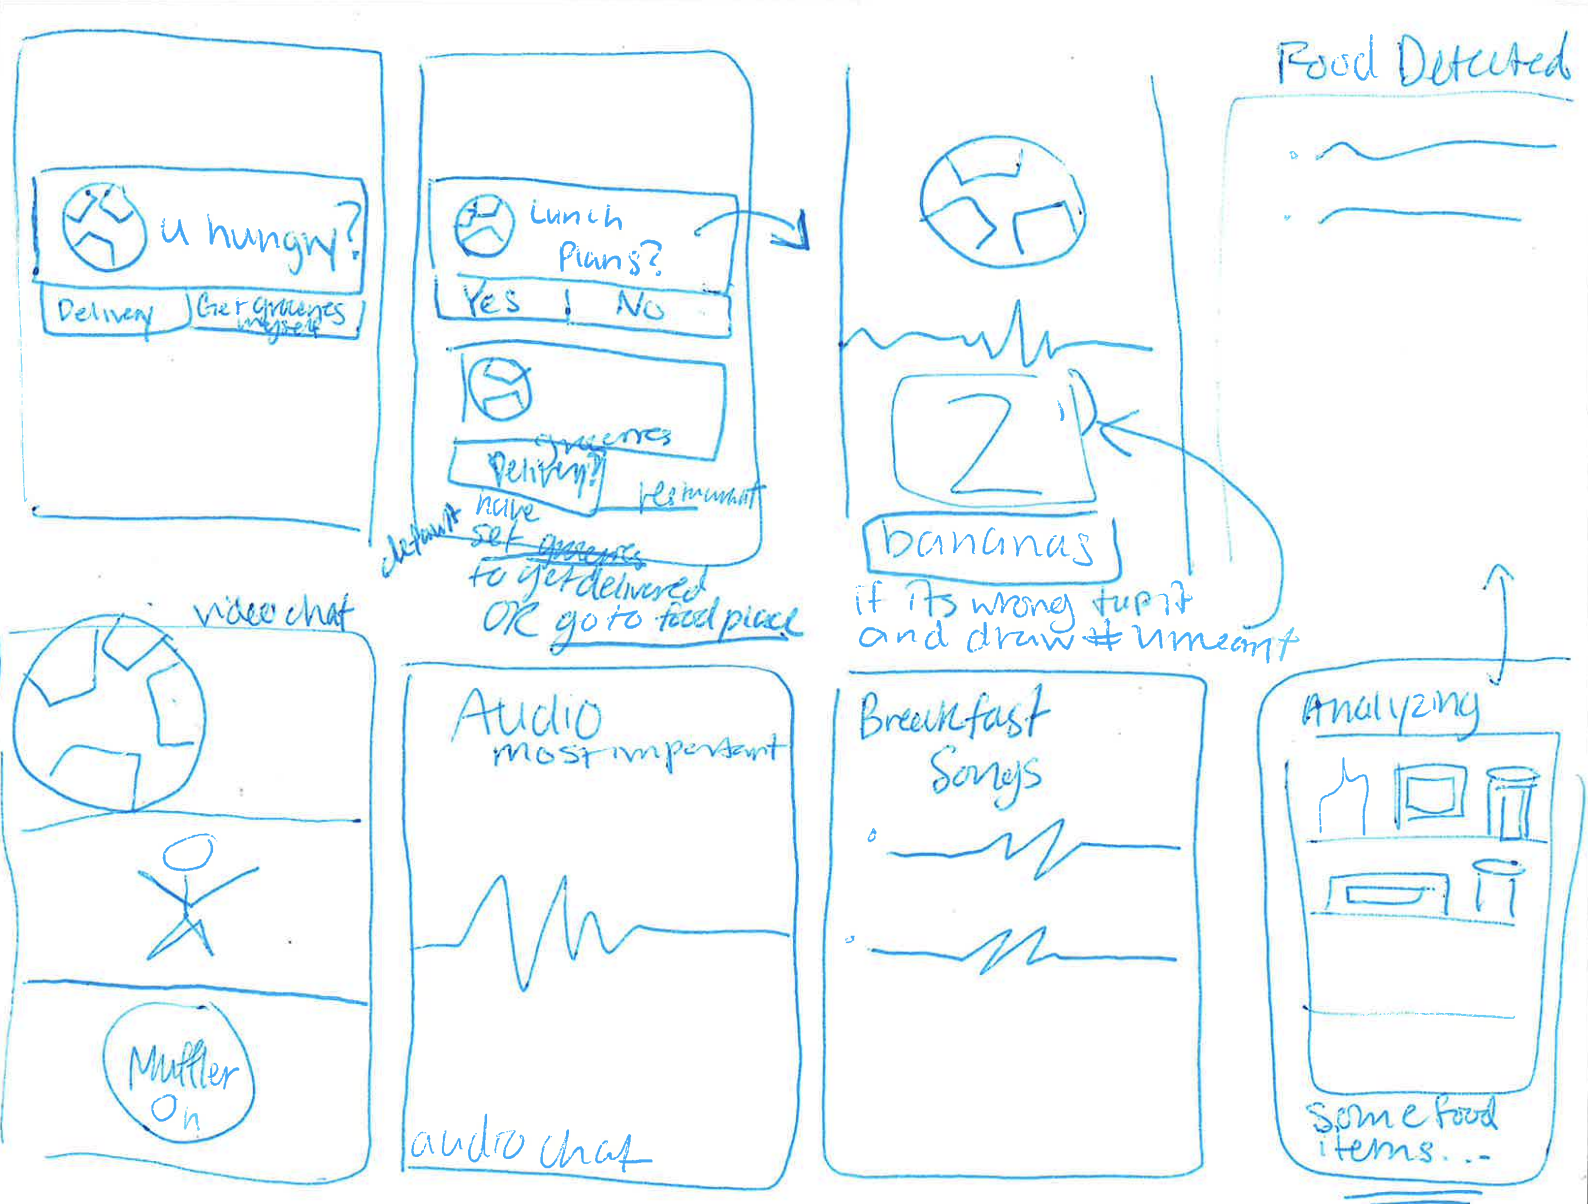 Food Detected
u hungry?
Delivery
Get groceries
myself
Lunch
Plans?
Yes
No
groceries
Delivery?
restaurant
default
have
set groceries
to get delivered
OR go to food place
2
bananas
if its wrong tap it
and draw # u meant
video chat
Muffler
On
Audio
most important
audio chat
Breakfast
Songs
Analyzing
some food
items...